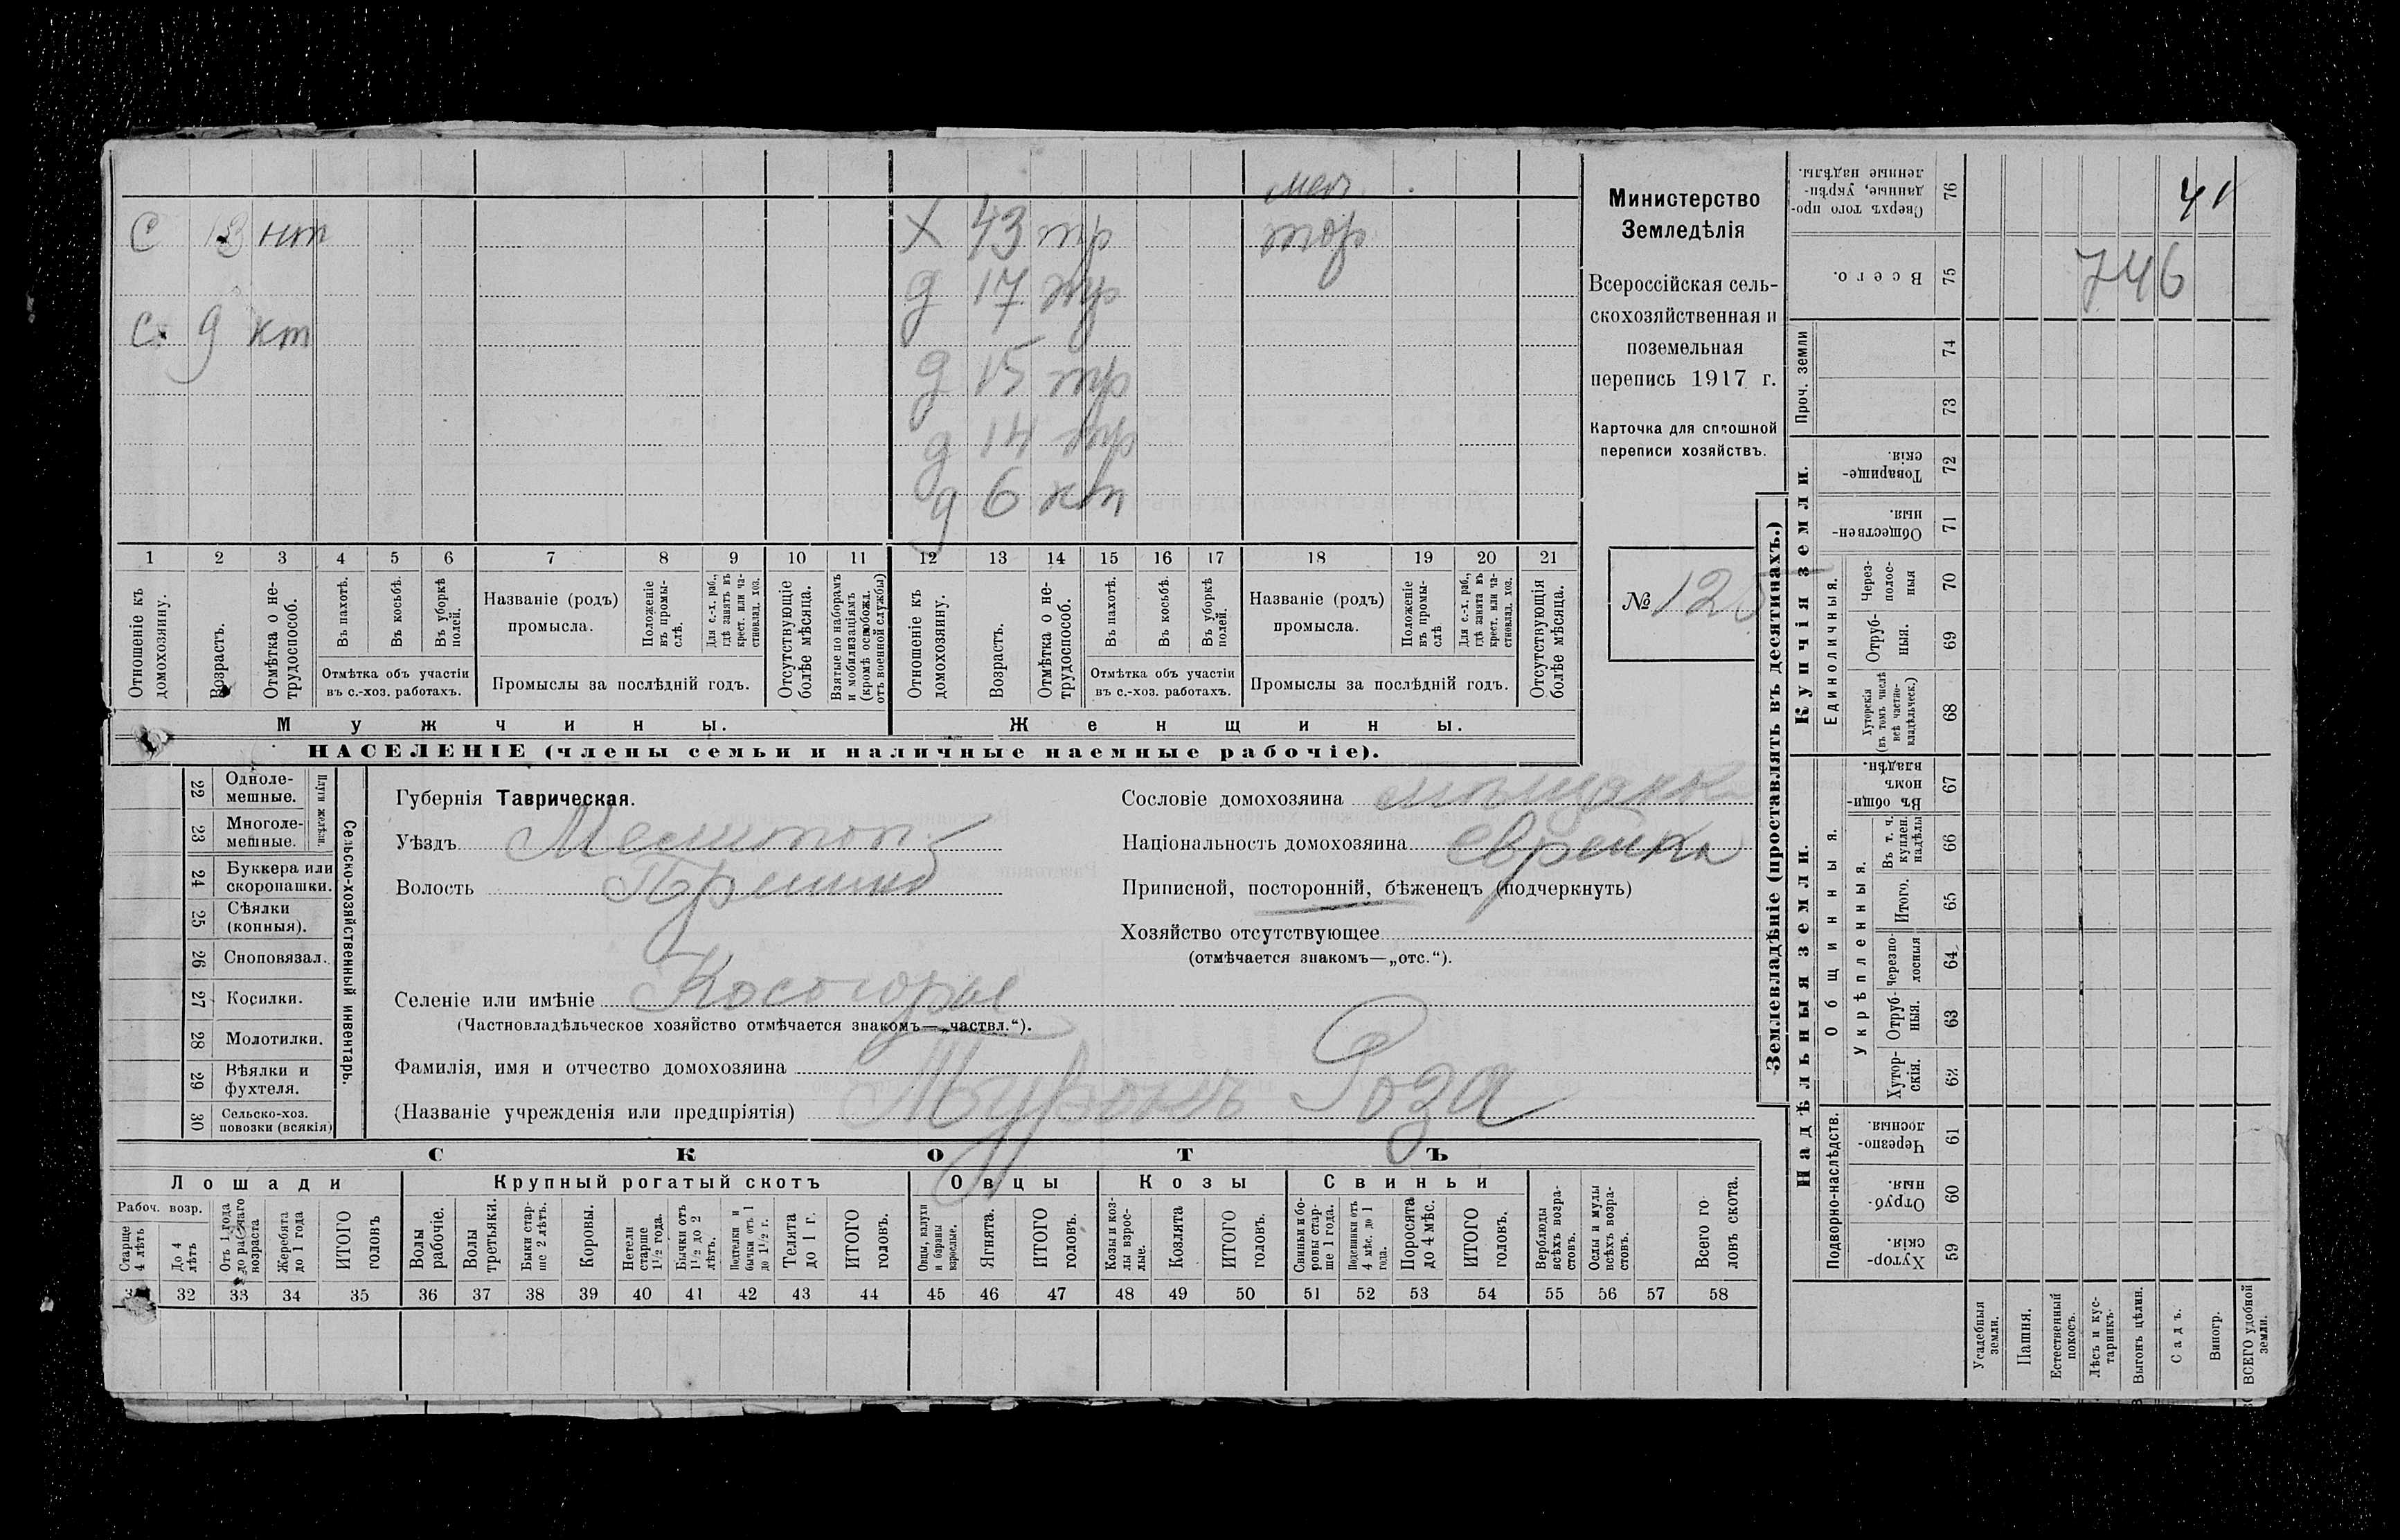 мел.
С 13 нт
Х 43 тр тор
С. 9 нт
д 17 тр
д 15 тр
д 14 тр
д 6 нт
1 2 3 4 5 6 7 8 9 10 11 12 13 14 15 16 17 18 19 20 21
Отношеніе къ домохозяину.
Возрастъ.
Отмѣтка о не-
трудоспособ.
Въ пахотѣ.
Въ косьбѣ.
Въ уборкѣ
полей.
Отмѣтка объ участіи
въ с.-хоз. работахъ.
Названіе (родъ)
промысла.
Положеніе
въ промы-
слѣ.
Для с.-х. раб.,
гдѣ занятъ въ
крест. или ча-
стновлад. хоз.
Промыслы за послѣдній годъ.
Отсутствующіе
болѣе мѣсяца.
Взятые по наборамъ
и мобилизаціямъ
(кромѣ освобожд.
отъ военной службы)
Отношеніе къ
домохозяину.
Возрастъ.
Отмѣтка о не-
трудоспособ.
Въ пахотѣ.
Въ косьбѣ.
Въ уборкѣ
полей.
Отмѣтка объ участіи
въ с.-хоз. работахъ.
Названіе (родъ)
промысла.
Положеніе
въ промы-
слѣ
Для с.-х. раб.,
гдѣ занята въ
крест. или ча-
стновлад. хоз.
Промыслы за послѣдній годъ.
Отсутствующія
болѣе мѣсяца.
Мужчины.
Женщины.
НАСЕЛЕНІЕ (члены семьи и наличные наемные рабочіе).
Министерство
Земледѣлія
Всероссійская сель-
скохозяйственная и
поземельная
перепись 1917 г.
Карточка для сплошной
переписи хозяйствъ.
№ 125
22 Одноле-
мешные.
23 Многоле-
мешные.
Плуги желѣзн.
24 Буккера или
скоропашки.
25 Сѣялки
(конныя).
26 Сноповязал.
27 Косилки.
28 Молотилки.
29 Вѣялки и
фухтеля.
30 Сельско-хоз.
повозки (всякія)
Сельско-хозяйственный инвентарь.
Губернія Таврическая.
Уѣздъ Мелитоп.
Волость
Селеніе или имѣніе Косогорье
(Частновладѣльческое хозяйство отмѣчается знакомъ—„частвл.“).
Фамилія, имя и отчество домохозяина
(Названіе учрежденія или предпріятія) Роза
Сословіе домохозяина мѣщанка
Національность домохозяина еврейка
Приписной, посторонній, бѣженецъ (подчеркнуть)
Хозяйство отсутствующее
(отмѣчается знакомъ—„отс.“).
СКОТЪ
Лошади
Рабоч. возр.
Старше
4 лѣтъ
До 4
лѣтъ
Отъ 1 года
до рабочаго
возраста
Жеребята
до 1 года
ИТОГО
головъ
Крупный рогатый скотъ
Волы
рабочіе.
Волы
третьяки.
Быки стар-
ше 2 лѣтъ.
Коровы.
Нетели
старше
1½ года.
Бычки отъ
1½ до 2
лѣтъ.
Подтелки и
бычки отъ 1
до 1½ г.
Телята
до 1 г.
ИТОГО
головъ.
Овцы
Овцы, валухи
и бараны
взрослые.
Ягнята.
ИТОГО
головъ.
Козы
Козы и коз-
лы взрос-
лые.
Козлята
ИТОГО
головъ.
Свиньи
Свиньи и бо-
ровы стар-
ше 1 года.
Подсвинки отъ
4 мѣс. до 1
года.
Поросята
до 4 мѣс.
ИТОГО
головъ.
Верблюды
всѣхъ возра-
стовъ.
Ослы и мулы
всѣхъ возра-
стовъ.
Всего го-
ловъ скота.
31 32 33 34 35 36 37 38 39 40 41 42 43 44 45 46 47 48 49 50 51 52 53 54 55 56 57 58
Землевладѣніе (проставлять въ десятинахъ.)
Сверхъ того про-
данные, укрѣп-
ленные надѣлы. 76
41
Всего. 75
746
Проч. земли
74
73
Купчія земли.
Товарище-
скія. 72
Обществен-
ныя. 71
Единоличныя.
Через-
полос-
ныя 70
Отруб-
ныя. 69
Хуторскія
(въ томъ числѣ
всѣ частно-
владѣльческ.) 68
Надѣльныя земли.
Общинныя.
Въ общин-
номъ
владѣн. 67
Укрѣпленныя.
Въ т. ч.
куплен.
надѣлы 66
Итого. 65
Черезпо-
лосныя 64
Отруб-
ныя. 63
Хутор-
скія. 62
Подворно-наслѣдств.
Черезпо-
лосныя. 61
Отруб-
ныя. 60
Хутор-
скія. 59
Усадебныя
земли.
Пашня.
Естественный
покосъ.
Лѣсъ и кус-
тарникъ.
Выгонъ цѣлин.
Садъ.
Виногр.
ВСЕГО удобной
земли.